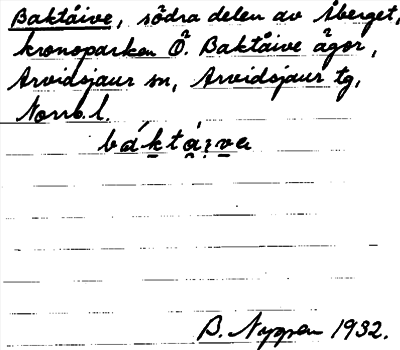 Baktåive, södra delen av Åberget,
kronoparken Ö. Baktåive ägor,
Arvidsjaur sn, Arvidsjaur tg,
Norrb.l.
báktái̯va
B. Nygren 1932.